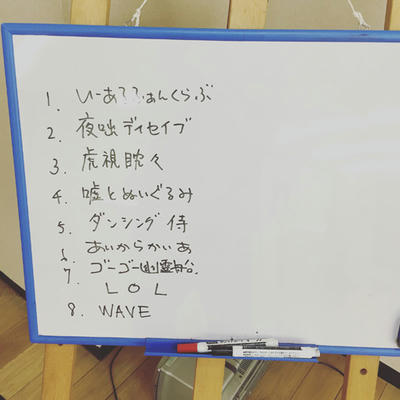 1. いーあるふぁんくらぶ
2. 夜咄ディセイブ
3. 虎視眈々
4. 嘘とぬいぐるみ
5. ダンシング侍
6. あいからかいあ
7. ゴーゴー幽霊船
LOL
8. WAVE